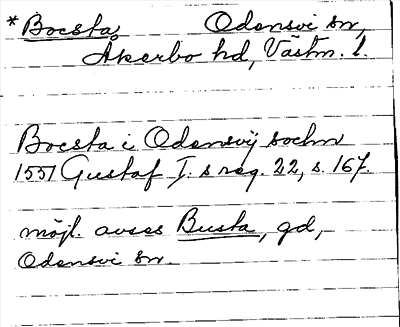 *Bocsta, Odensvi sn,
Åkerbo hd, Västm. l.
Bocsta i Odensvij sochn
1551 Gustaf I.s reg. 22, s. 167.
möjl. avses Busta, gd,
Odensvi sn.